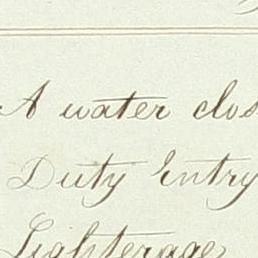 A water clos
Duty Entry
Lighterage